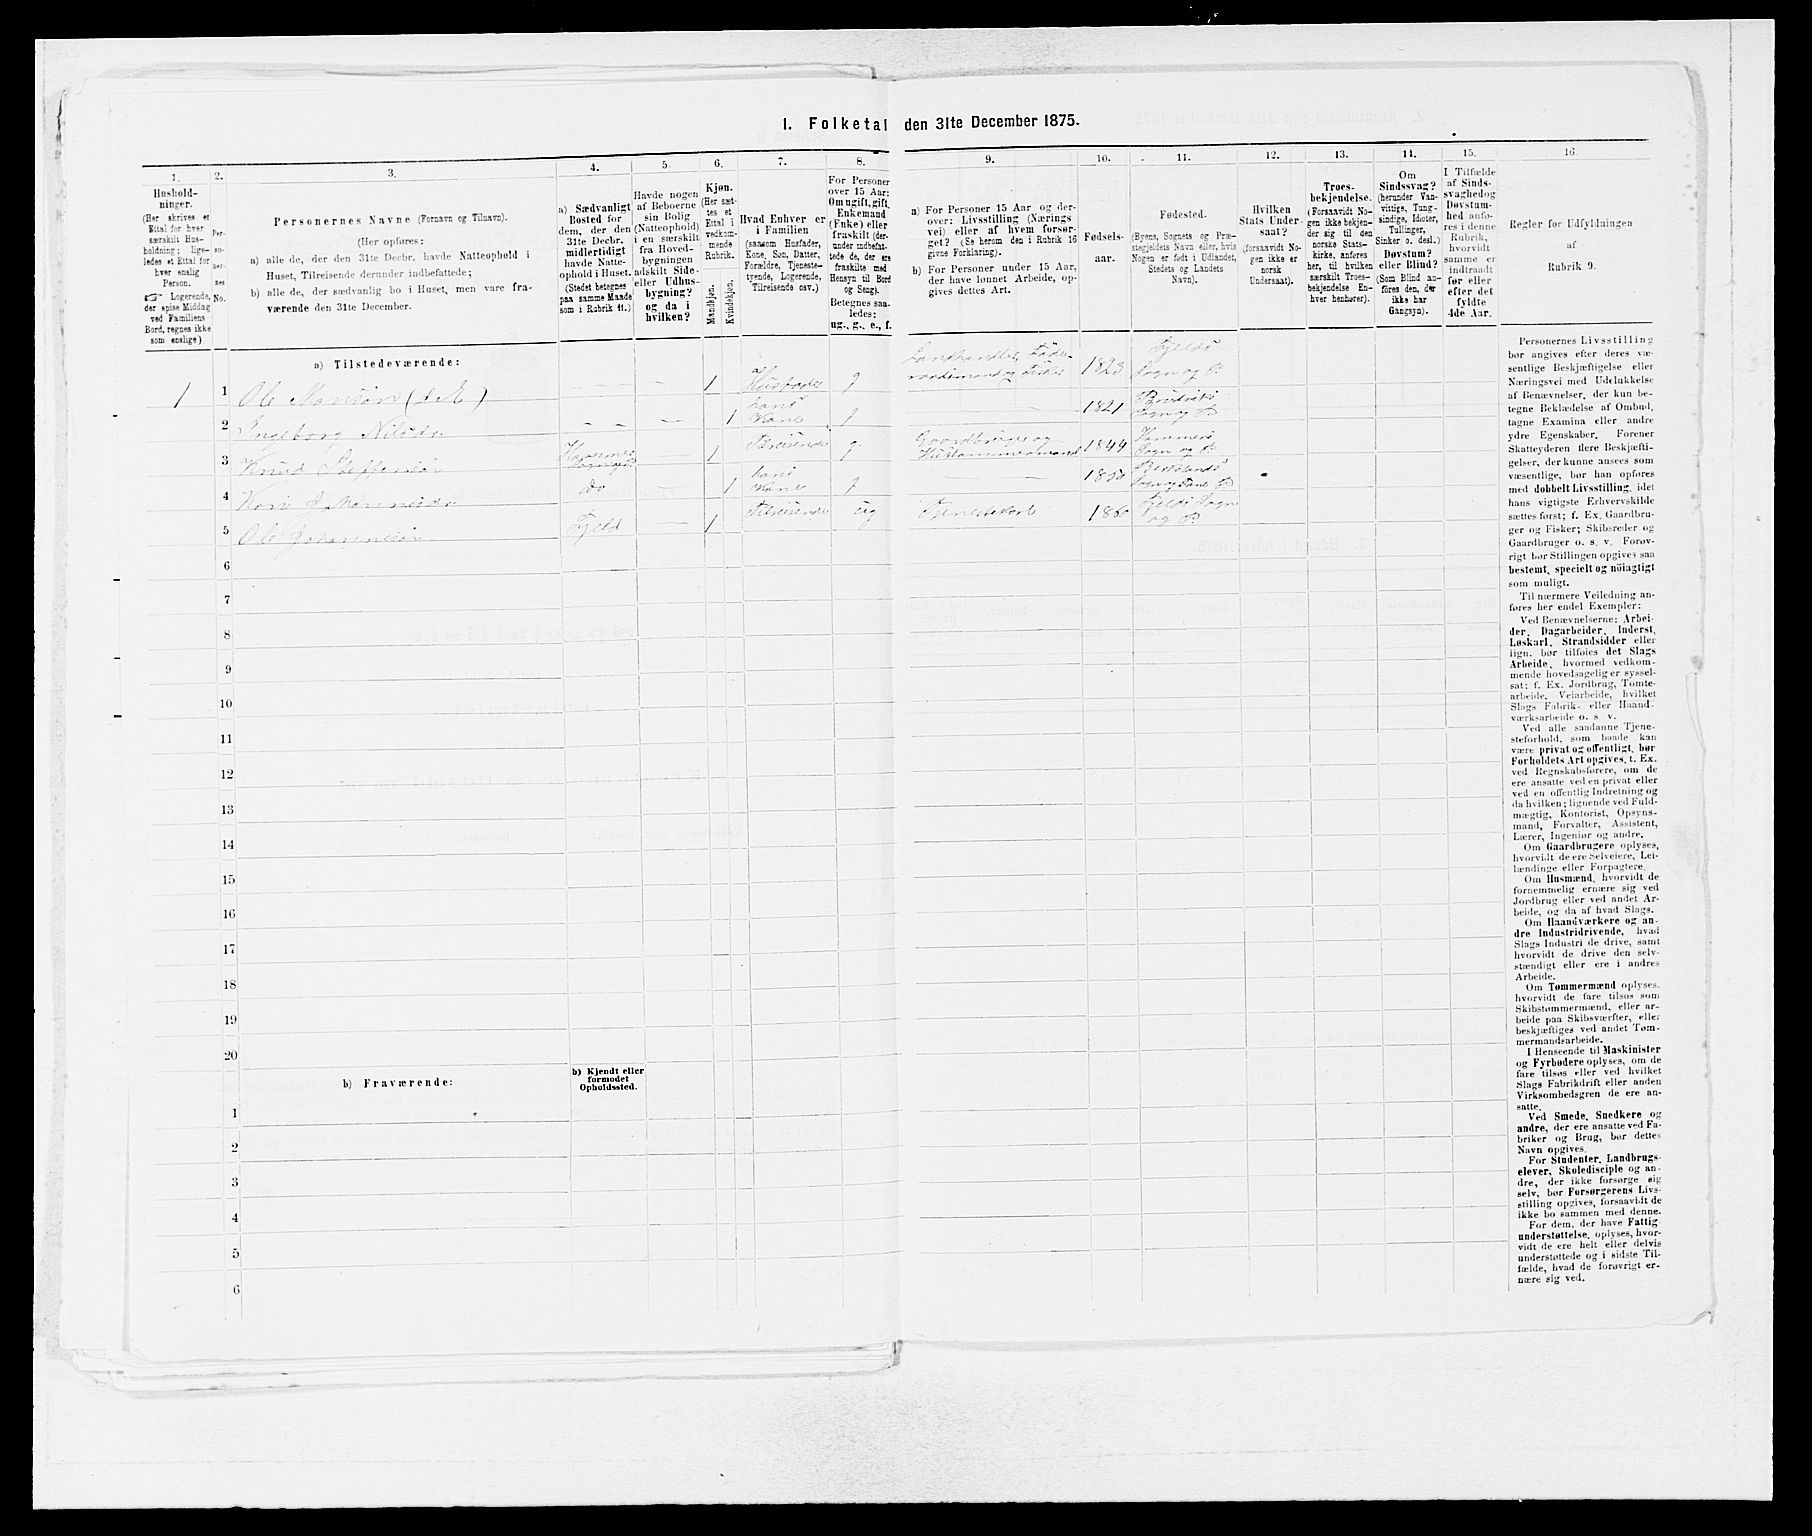 I. Folketal den 31te December 1875.
1.
Hushold-
ninger.
(Her skrives et
Ettal for hver
særskilt Hus-
holdning; lige-
ledes et Ettal for
hver enslig
Person.
☞ Logerende,
der spise Middag
ved Familiens
Bord, regnes ikke
som enslige)
2.
Per-
so-
ner-
nes
No.
3.
Personernes Navne (Fornavn og Tilnavn).
(Her opføres:
a) alle de, der den 31te Decbr. havde Natteophold i
Huset, Tilreisende derunder indbefattede;
b) alle de, der sædvanlig bo i Huset, men vare fra-
værende den 31te December.
4.
a) Sædvanligt
Bosted for
dem, der den
31te Decbr.
midlertidigt
havde Natte-
ophold i Huset.
(Stedet betegnes
paa samme Maade
som i Rubrik 11.)
5.
Havde nogen
af Beboerne
sin Bolig
(Natteophold)
i en særskilt
fra Hoved-
bygningen
adskilt Side-
eller Udhus-
bygning?
og da i
hvilken?
6.
Kjøn.
(Her sæt-
tes et
Ettal i
vedkom-
mende
Rubrik.
Mandkjøn.
Kvindekjøn.
7.
Hvad Enhver er
i Familien
(saasom Husfader,
Kone, Søn, Datter,
Forældre, Tjeneste-
tyende, Logerende,
Tilreisende osv.)
8.
For Personer
over 15 Aar:
Om ugift, gift,
Enkemand
(Enke) eller
fraskilt (der-
under indbefat-
tede de, der ere
fraskilte med
Hensyn til Bord
og Seng).
Betegnes saa-
ledes:
ug., g., e., f.
9.
a) For Personer 15 Aar og der-
over: Livsstilling (Nærings
vei) eller af hvem forsør-
get? (Se herom den i Rubrik 16
givne Forklaring).
b) For Personer under 15 Aar,
der have lønnet Arbeide, op-
gives dettes Art.
10.
Fødsels-
aar.
11.
Fødested.
(Byens, Sognets og Præ-
stegjeldets Navn eller, hvis
Nogen er født i Udlandet,
Stedets og Landets
Navn).
12.
Hvilken
Stats Under-
saat?
(forsaavidt No-
gen ikke er
norsk
Undersaat).
13.
Troes-
bekjendelse.
(Forsaavidt No-
gen ikke bekjen-
der sig til den
norske Stats-
kirke, anføres
her, til hvilken
særskilt Troes-
bekjendelse En-
hver henhører).
14.
Om
Sindssvag?
(herunder Van-
vittige, Tung-
sindige, Idioter,
Tullinger,
Sinker o. desl.)
Døvstum?
eller Blind?
(Som Blind an-
føres den, der
ikke har
Gangsyn).
15.
I Tilfælde
af Sinds-
svaghed og
Døvstum-
hed anfø-
res i denne
Rubrik,
hvorvidt
samme er
indtraadt
før eller
efter det
fyldte
4de Aar.
16.
Regler for Udfyldningen
af
Rubrik 9.
a) Tilstedeværende:
1 1 Ole Monsøn — — 1 Husfader g Landhandler, Føde- raadsmand og 1823 Fjelds Sogn og P
2 Ingeborg Nilsdr — — 1 hans Kone g — — 1821 Sogn og P
3 Knud Steffensøn — 1 Tilreisende g. Gaardbruger og 1844 Hammers Sogn og P
4 Kari Johannesdr do — 1 hans Kone g — — 1850
5 Ole Johannesøn Fjeld 1 Tilreisende ug Tjenestekarl 1860 Fjelds Sogn og P
6
7
8
9
10
11
12
13
14
15
16
17
18
19
20
b) Fraværende:
b) Kjendt eller
formodet
Opholdssted.
1
2
3
4
5
6
Personernes Livsstilling
bør angives efter deres væ-
sentlige Beskjæftigelse eller
Næringsvei med Udelukkelse
af Benævnelser, der kun be-
tegne Beklædelse af Ombud,
tagne Examina eller andre
ydre Egenskaber. Forener
Skatteyderen flere Beskjæfti-
gelser, der kunne ansees som
væsentlige, bør han opføres
med dobbelt Livsstilling, idet
hans vigtigste Erhvervskilde
sættes først; f. Ex. Gaardbru-
ger og Fisker; Skibsreder og
Gaardbruger o. s. v. Forøv-
rigt bør Stillingen opgives saa
bestemt, specielt og nöiagtigt
som muligt.
Til nærmere Veiledning an-
føres her endel Exempler:
Ved Benævnelserne: Arbei-
der, Dagarbeider, Inderst,
Løskarl, Strandsidder eller
lign. bør tilføies det Slags
Arbeide, hvormed vedkom-
mende hovedsagelig er syssel-
sat; f. Ex. Jordbrug, Tomte-
arbeide, Veiarbeide, hvilket
Slags Fabrik- eller Haand-
værksarbeide o. s. v.
Ved alle saadanne Tjene-
steforhold, som baade kan
være privat og offentligt, bør
Forholdets Art opgives, t. Ex.
ved Regnskabsførere, om de
ere ansatte ved en privat eller
ved en offentlig Indretning og
da hvilken; lignende ved Fuld-
mægtig, Kontorist, Opsyns-
mand, Forvalter, Assistent,
Lærer, Ingeniør og andre.
Om Gaardbrugere oplyses,
hvorvidt de ere Selveiere, Lei-
lændinge eller Forpagtere.
Om Husmænd, hvorvidt de
fornemmelig ernære sig ved
Jordbrug eller ved andet Ar-
beide, og da af hvad Slags.
Om Haandværkere og an-
dre Industridrivende, hvad
Slags Industri de drive, samt
hvorvidt de drive den selv-
stændigt eller ere i andres
Arbeide.
Om Tømmermænd oplyses,
hvorvidt de fare tilsøs som
Skibstømmermænd, eller ar-
beide paa Skibsværfter, eller
beskjæftiges ved andet Tøm-
mermandsarbeide.
I Henseende til Maskinister
og Fyrbødere oplyses, om de
fare tilsøs eller ved hvilket
Slags Fabrikdrift eller anden
Virksomhedsgren de ere an-
satte.
Ved Smede, Snedkere og
andre, der ere ansatte ved Fa-
briker og Brug, bør dettes
Navn opgives.
For Studenter, Landbrugs-
elever, Skoledisciple og an-
dre, der ikke forsørge sig
selv, bør Forsørgerens Livs-
stilling opgives, forsaavidt de
ikke bo sammen med denne.
For dem, der have Fattig
understøttelse, oplyses, hvor-
vidt de ere helt eller delvis
understøttede og i sidste Til-
fælde, hvad de forøvrigt er-
nære sig ved.